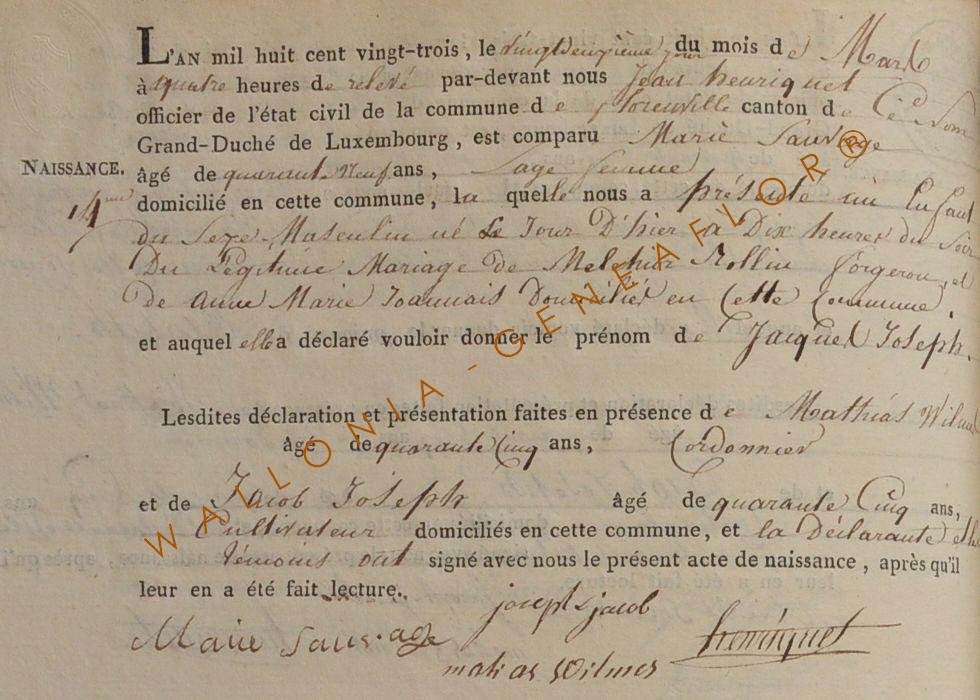 L'AN mil huit cent vingt-trois, le vingtdeuxième jour du mois de Mars
à quatre heures de relevé par-devant nous Jean henriquet
officier de l'état civil de la commune de florenville canton de
Grand-Duché de Luxembourg, est comparu Marie Sauvage
NAISSANCE. âgé de quarante Neuf ans, Sage femme
14me domicilié en cette commune, la quelle nous a présenté un Enfant
du Sexe Masculin né Le Jour D'hier à Dix heures du Soir
Du Légitime Mariage de Melchior Rollin forgeron, et
De Anne Marie Joannais Domicilié en Cette Commune,
et auquel elle a déclaré vouloir donner le prénom de Jacques Joseph.
Lesdites déclaration et présentation faites en présence de Mathias Wilmes
âgé de quarante Cinq ans, Cordonnier
et de Jacob Joseph âgé de quarante Cinq ans,
Cultivateur domiciliés en cette commune, et la Déclarante et les
témoins ont signé avec nous le présent acte de naissance, après qu'il
leur en a été fait lecture.
joseph jacob
Marie Sauvage
henriquet
matias Wilmes
WALLONIA-GENEAFLOR®